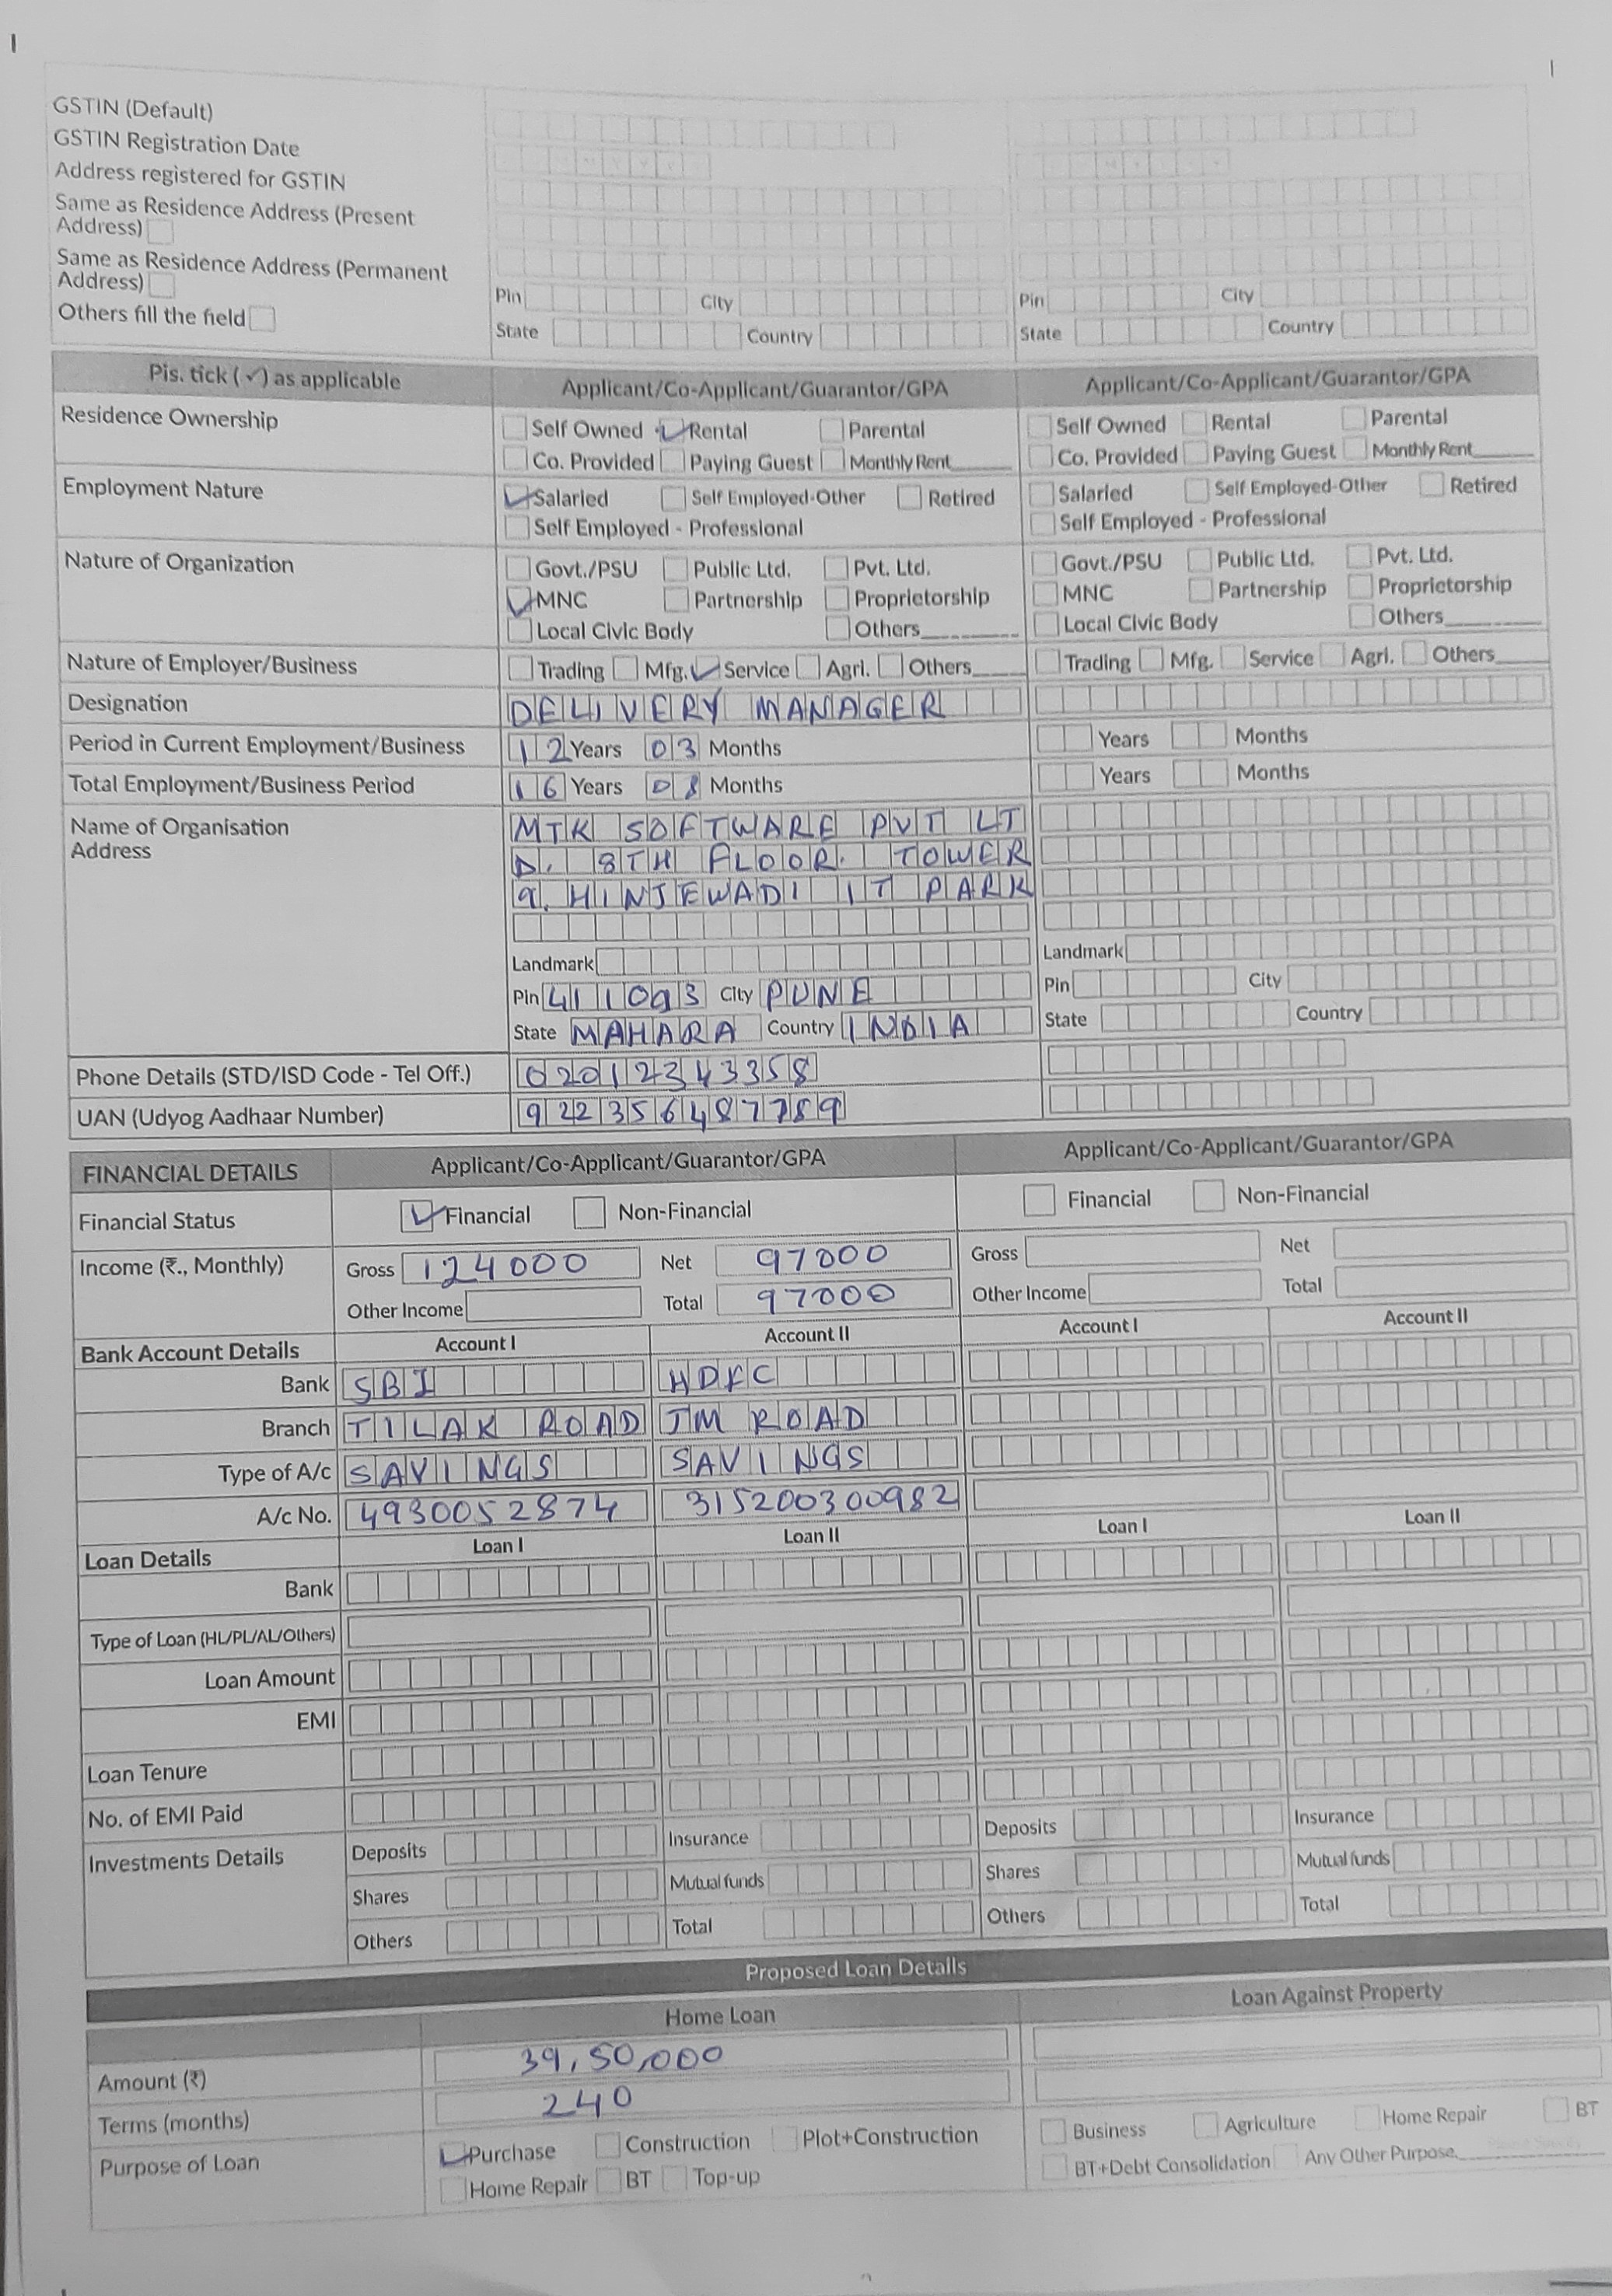 GSTIN (Default)
GSTIN Registration Date
Address registered for GSTIN
Same as Residence Address (Present
Address)
Same as Residence Address (Permanent
Address)
Others fill the field
Pin City Pin City
State Country State Country
Pls. tick (✓) as applicable Applicant/Co-Applicant/Guarantor/GPA Applicant/Co-Applicant/Guarantor/GPA
Residence Ownership Self Owned ✓ Rental Parental Self Owned Rental Parental
Co. Provided Paying Guest Monthly Rent Co. Provided Paying Guest Monthly Rent
Employment Nature ✓ Salaried Self Employed-Other Retired Salaried Self Employed-Other Retired
Self Employed - Professional Self Employed - Professional
Nature of Organization Govt./PSU Public Ltd. Pvt. Ltd. Govt./PSU Public Ltd. Pvt. Ltd.
✓ MNC Partnership Proprietorship MNC Partnership Proprietorship
Local Civic Body Others Local Civic Body Others
Nature of Employer/Business Trading Mfg. ✓ Service Agri. Others Trading Mfg. Service Agri. Others
Designation DELIVERY MANAGER
Period in Current Employment/Business 12 Years 03 Months Years Months
Total Employment/Business Period 16 Years 08 Months Years Months
Name of Organisation MTK SOFTWARE PVT LT
Address D. 8TH FLOOR. TOWER
9. HINJEWADI IT PARK
Landmark Landmark
Pin 411093 City PUNE Pin City
State MAHARA Country INDIA State Country
Phone Details (STD/ISD Code - Tel Off.) 02012343358
UAN (Udyog Aadhaar Number) 922356487789
FINANCIAL DETAILS Applicant/Co-Applicant/Guarantor/GPA Applicant/Co-Applicant/Guarantor/GPA
Financial Status ✓ Financial Non-Financial Financial Non-Financial
Income (₹., Monthly) Gross 124000 Net 97000 Gross Net
Other Income Total 97000 Other Income Total
Bank Account Details Account I Account II Account I Account II
Bank SBI HDFC
Branch TILAK ROAD JM ROAD
Type of A/c SAVINGS SAVINGS
A/c No. 4930052874 315200300982
Loan Details Loan I Loan II Loan I Loan II
Bank
Type of Loan (HL/PL/AL/Others)
Loan Amount
EMI
Loan Tenure
No. of EMI Paid
Investments Details Deposits Insurance Deposits Insurance
Shares Mutual funds Shares Mutual funds
Others Total Others Total
Proposed Loan Details
Home Loan Loan Against Property
Amount (₹) 39,50,000
Terms (months) 240
Purpose of Loan ✓ Purchase Construction Plot+Construction Business Agriculture Home Repair BT
Home Repair BT Top-up BT+Debt Consolidation Any Other Purpose